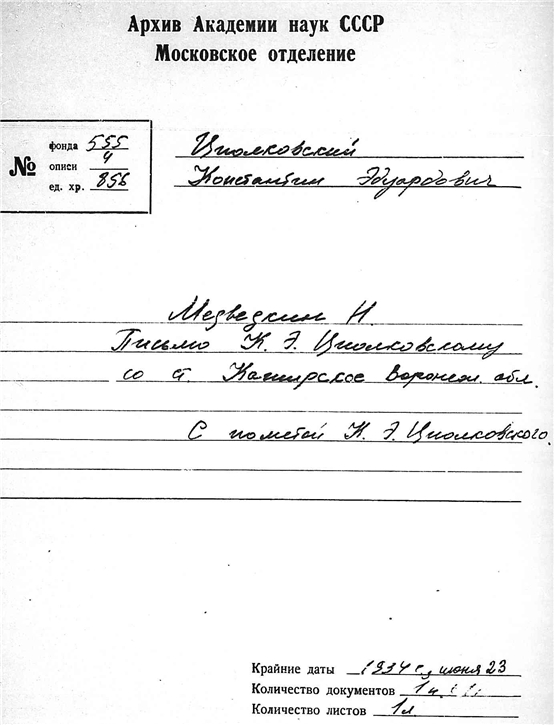 Архив Академии наук СССР
Московское отделение
№
фонда 555
описи 4
ед. хр. 856
Циолковский
Константин Эдуардович
Медведкин Н.
Письмо К. Э. Циолковскому
со ст. Каширское Воронеж. обл.
С пометой К. Э. Циолковского.
Крайние даты 1934 г., июня 23
Количество документов
Количество листов 1л